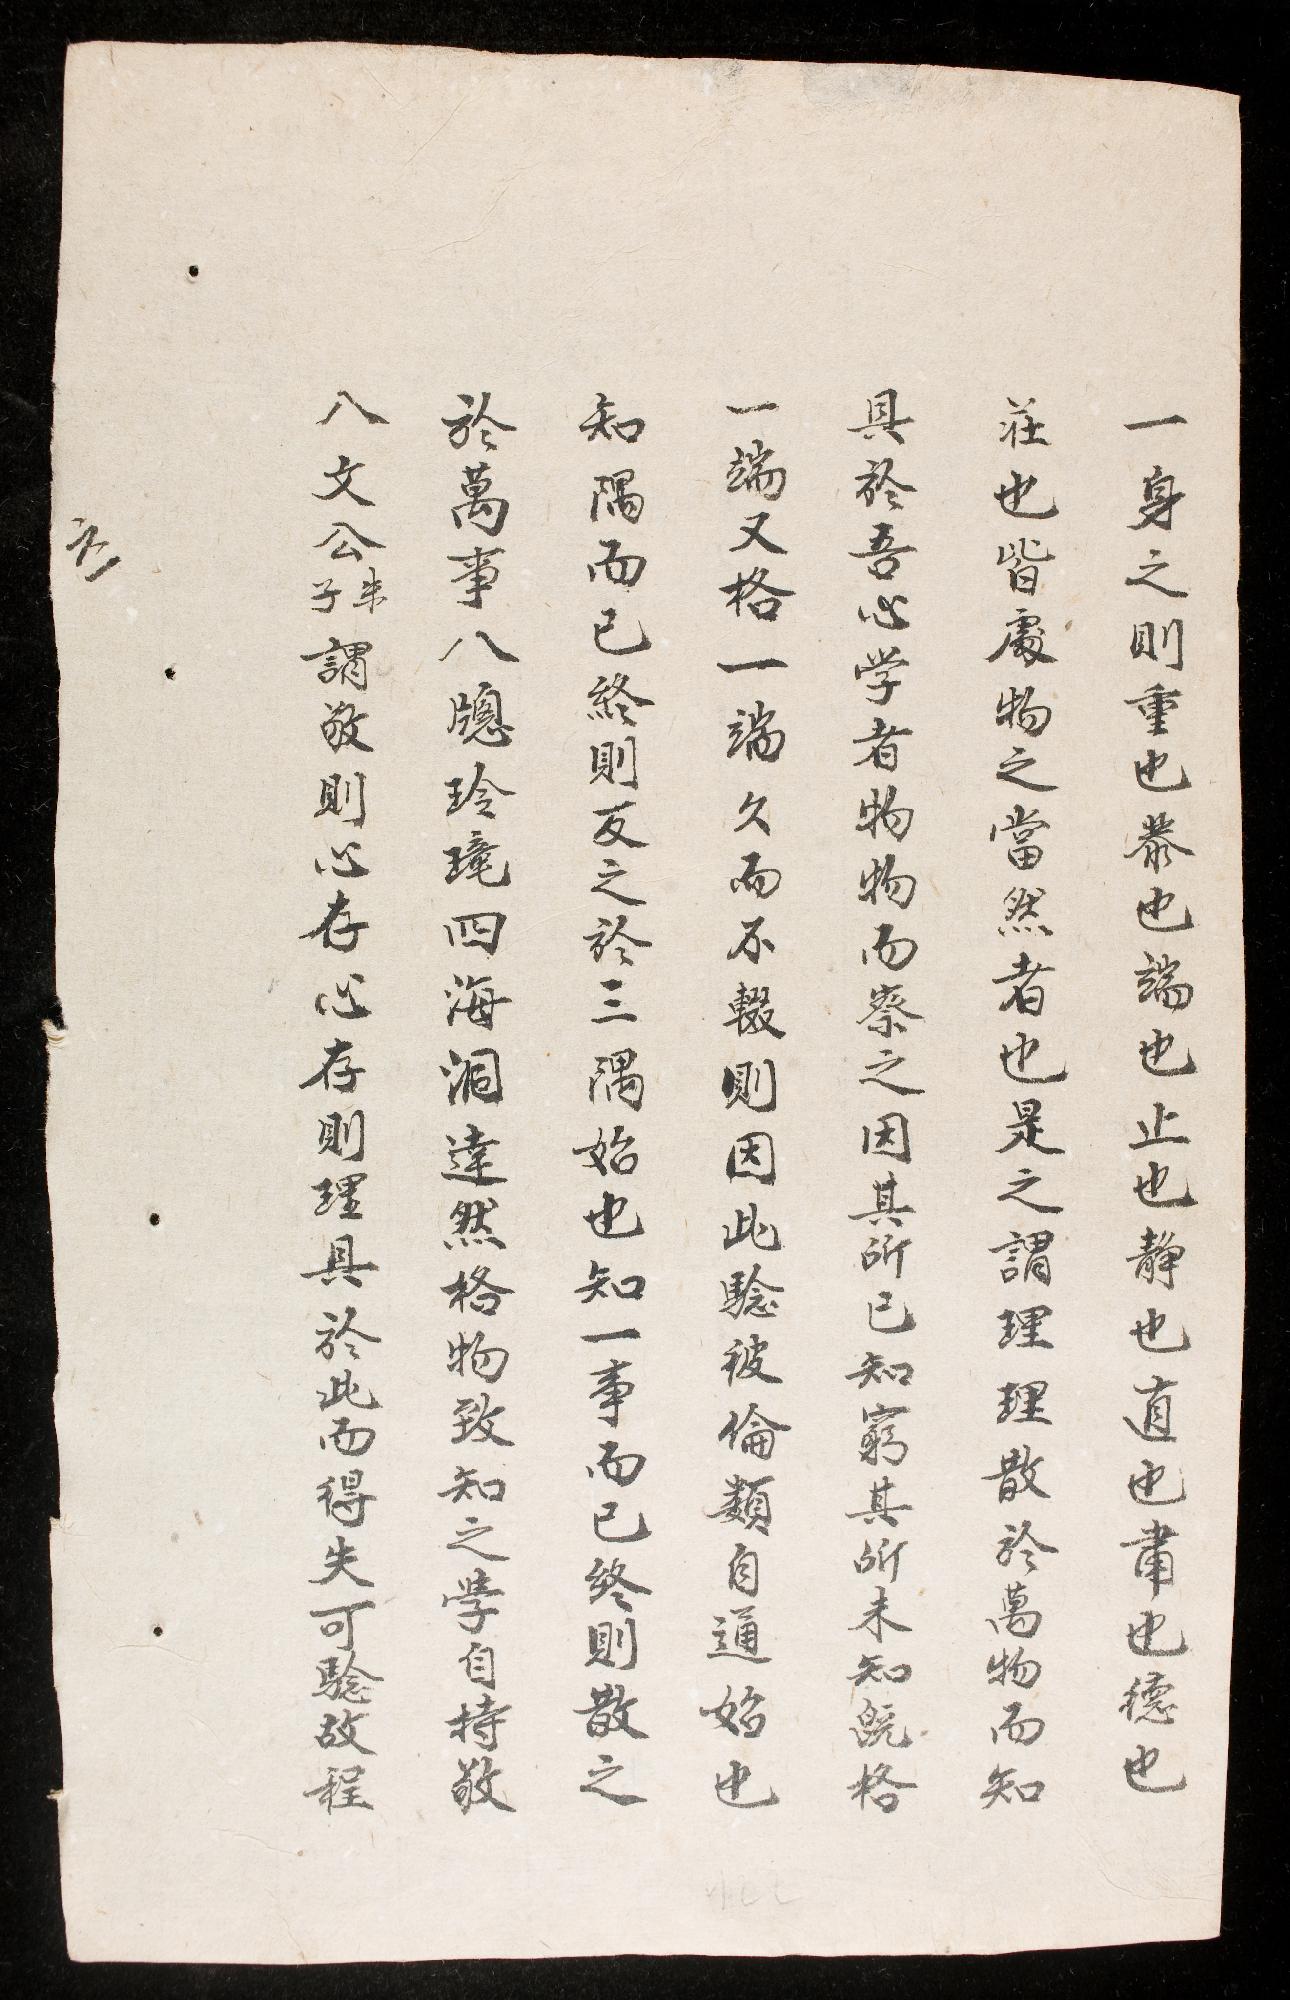 一身之則重也恭也端也止也静也直也肅也德也
莊也皆處物之當然者也是之謂理理散於萬物而知
具於吾心学者物物而察之因其所已知窮其所未知既格
一端又格一端久而不輟則因此驗彼倫類自通始也
知隅而已終則反之於三隅始也知一事而已終則散之
於萬事八牕玲瓏四海洞達然格物致知之学自持敬
八文公朱子謂敬則心存心存則理具於此而得失可驗故程